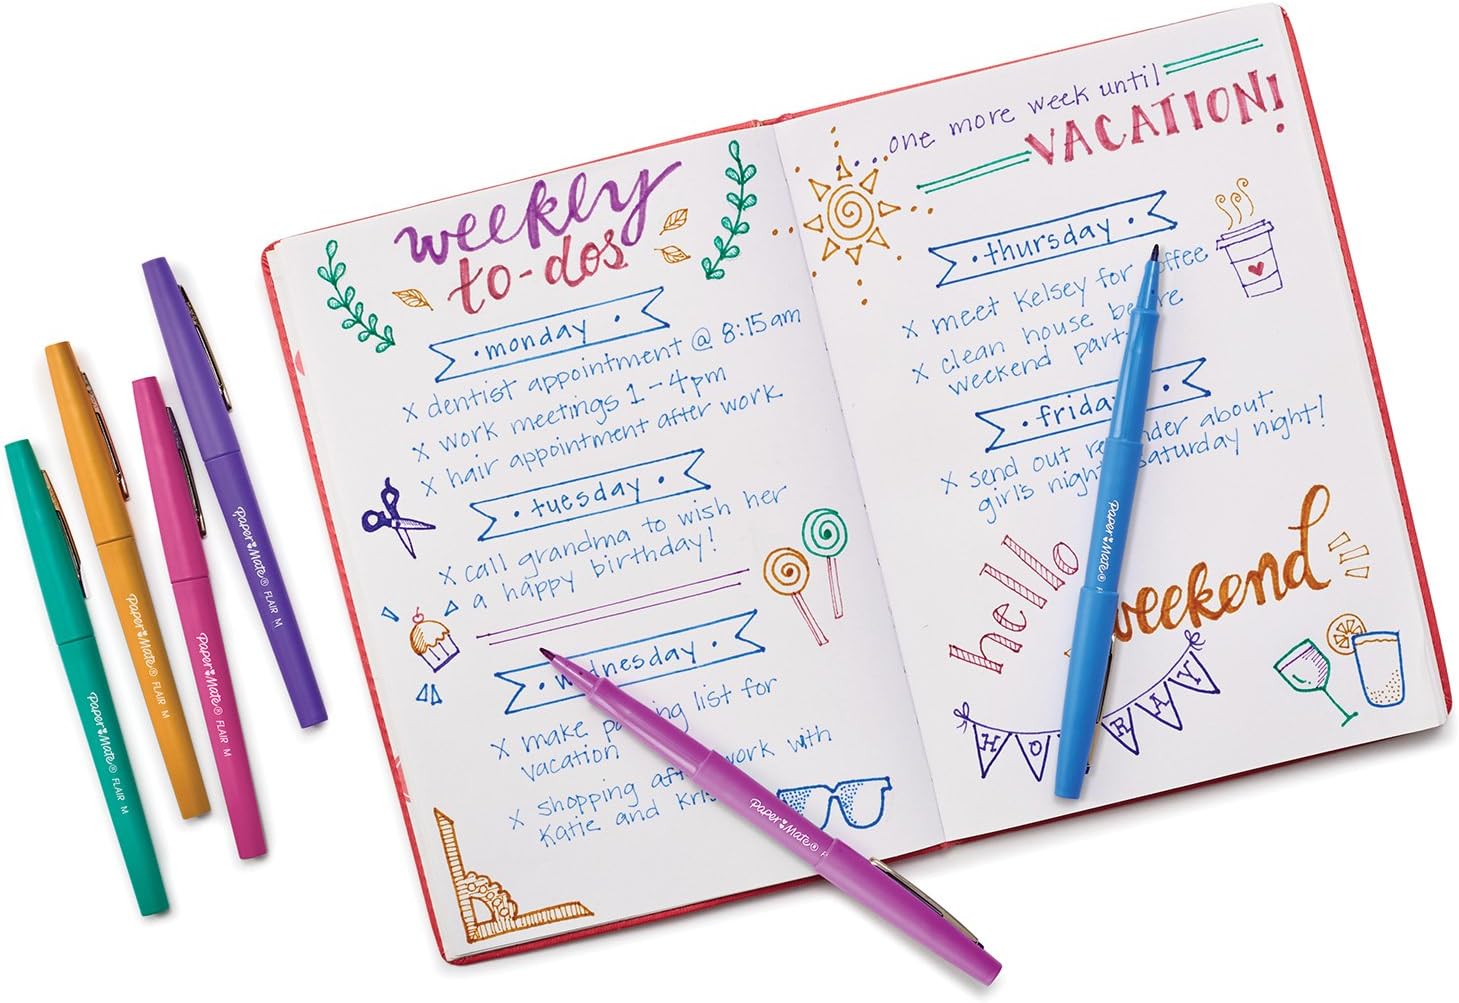 weekly
to-dos
monday
x dentist appointment @ 8:15am
x work meetings 1-4pm
x hair appointment after work
tuesday
x call grandma to wish her
a happy birthday!
wednesday
x make list for
vacation
x shopping work with
Katie and
...one more week until
VACATION!
thursday
x meet Kelsey for coffee
x clean house before
weekend party
friday
x send out reminder about
girl's night Saturday night!
hello
weekend
HORAY
Paper Mate® FLAIR M
Paper Mate® FLAIR M
Paper Mate® FLAIR M
Paper Mate® FLAIR M
Paper Mate®
Paper Mate®